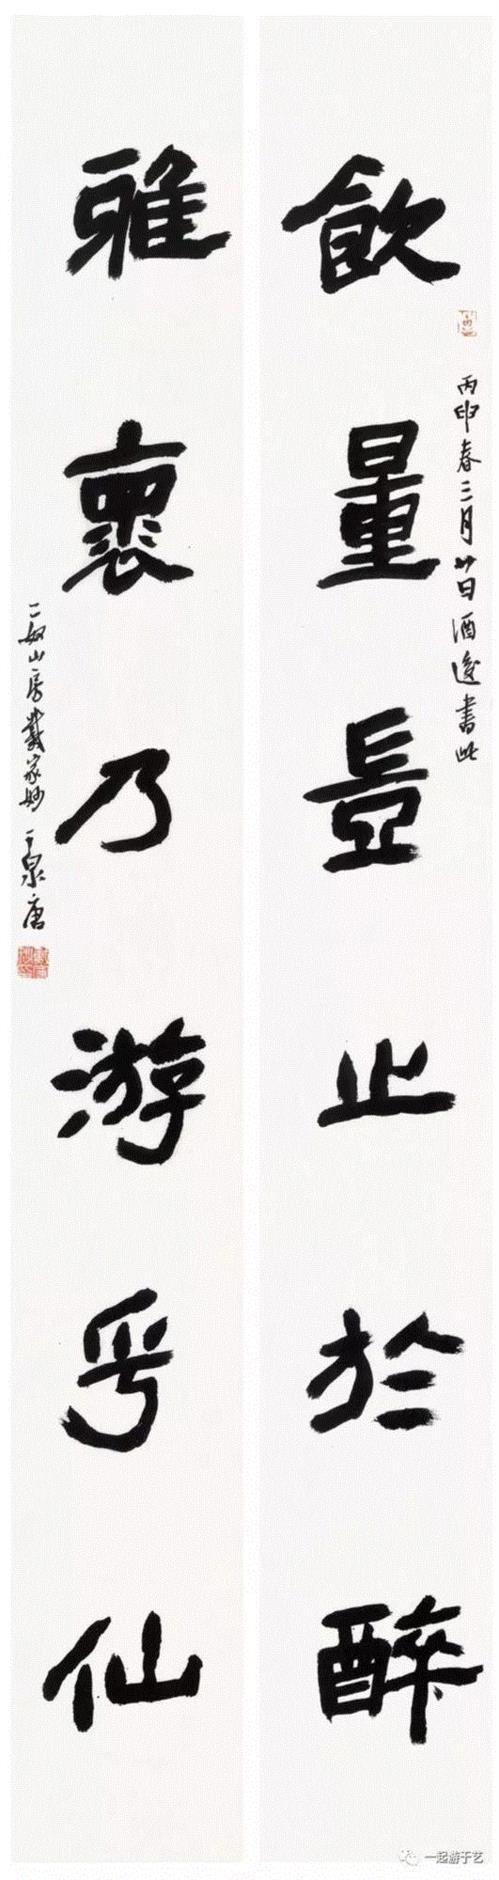 飲量豈止於醉
丙申春三月廿日酒後書此
雅褱乃游乎仙
二奴山房戴家妙于泉唐
一起游于艺